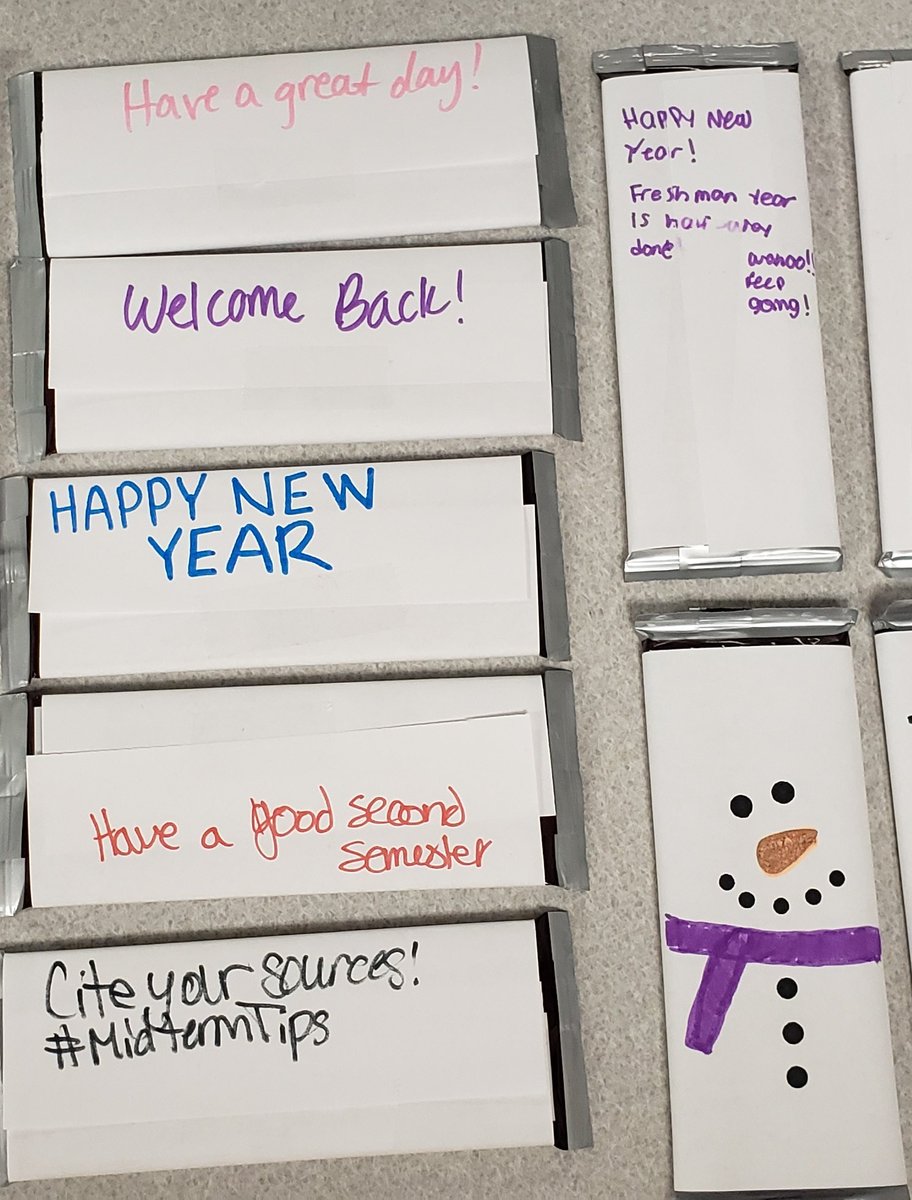 Have a great day!
Welcome Back!
HAPPY NEW
YEAR
Have a good second
semester
Cite your sources!
#MidtermTips
HAPPY New
Year!
Freshman year
is half way
done
wahoo!!
keep
going!